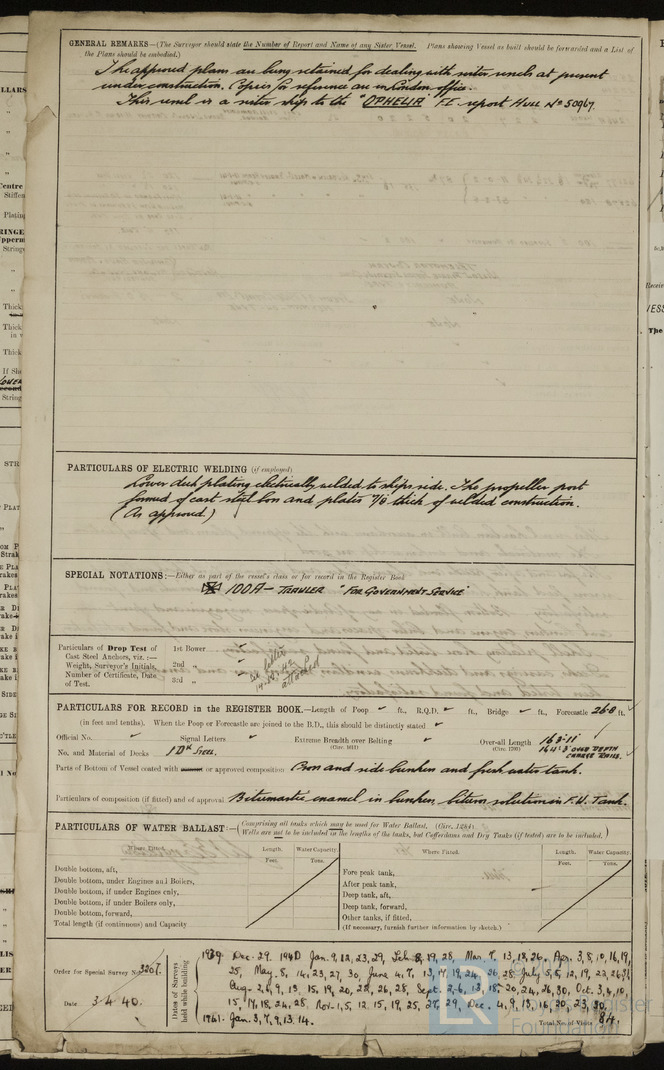 GENERAL REMARKS—(The Surveyor should state the Number of Report and Name of any Sister Vessel. Plans showing Vessel as built should be forwarded and a List of
the Plans should be embodied.)
The approved plans are being retained for dealing with sister vessels at present
under construction. Copies for reference are in London office.
This vessel is a sister ship to the "OPHELIA" F.E. report Hull No 50967.
PARTICULARS OF ELECTRIC WELDING (if employed)
Lower deck plating electrically welded to ships side. The propeller post
formed of cast steel bon and plates 7/8 thick of welded construction.
(As approved.)
SPECIAL NOTATIONS:—Either as part of the vessel's class or for record in the Register Book
100A— TRAWLER "FOR GOVERNMENT SERVICE"
Particulars of Drop Test of
Cast Steel Anchors, viz.:—
Weight, Surveyor's Initials,
Number of Certificate, Date
of Test.
1st Bower
2nd "
3rd "
attached
PARTICULARS FOR RECORD in the REGISTER BOOK.—Length of Poop ft., R.Q.D. ft., Bridge ft., Forecastle 26·8 ft.
(in feet and tenths). When the Poop or Forecastle are joined to the B.D., this should be distinctly stated
Official No. Signal Letters Extreme Breadth over Belting (Circ. 1611) Over-all Length (Circ. 1703) 163·11"
164·3" OVER DEPTH
CHARGE RAILS.
No. and Material of Decks 1 Dk Steel.
Parts of Bottom of Vessel coated with cement or approved composition Bron and side bunkers and fresh water tank.
Particulars of composition (if fitted) and of approval Bitumastic enamel in bunkers, bitum solution in F.W. Tank.
PARTICULARS OF WATER BALLAST:—(Comprising all tanks which may be used for Water Ballast, (Circ. 1284)
Wells are not to be included in the lengths of the tanks, but Cofferdams and Dry Tanks (if tested) are to be included.)
Where Fitted. Length. Water Capacity. Where Fitted. Length. Water Capacity.
Feet. Tons. Feet. Tons.
Double bottom, aft,
Double bottom, under Engines and Boilers,
Double bottom, if under Engines only,
Double bottom, if under Boilers only,
Double bottom, forward,
Total length (if continuous) and Capacity
Fore peak tank,
After peak tank,
Deep tank, aft,
Deep tank, forward,
Other tanks, if fitted,
(If necessary, furnish further information by sketch.)
Order for Special Survey No. 3206.
Date 3.4.40.
Dates of Surveys
held while building
1939. Dec. 29. 1940 Jan. 9, 12, 23, 29, Feb. 8, 19, 28, Mar. 7, 13, 18, 26, Apr. 3, 8, 10, 16, 19,
25, May. 8, 14, 23, 27, 30, June 4, 7, 13, 17, 19, 24, 26, 28, July 5, 8, 12, 19, 22, 26,
Aug. 2, 6, 9, 13, 15, 19, 20, 22, 26, 28, Sept. 2, 6, 13, 18, 20, 24, 26, 30, Oct. 3, 4, 10,
15, 17, 18, 24, 28, Nov. 1, 5, 12, 15, 19, 25, 27, 29, Dec. 4, 9, 13, 16, 20, 23, 30,
1941. Jan. 3, 7, 9, 13, 14.
Total No. of Visits 84
LR
Lloyd's Register
Foundation